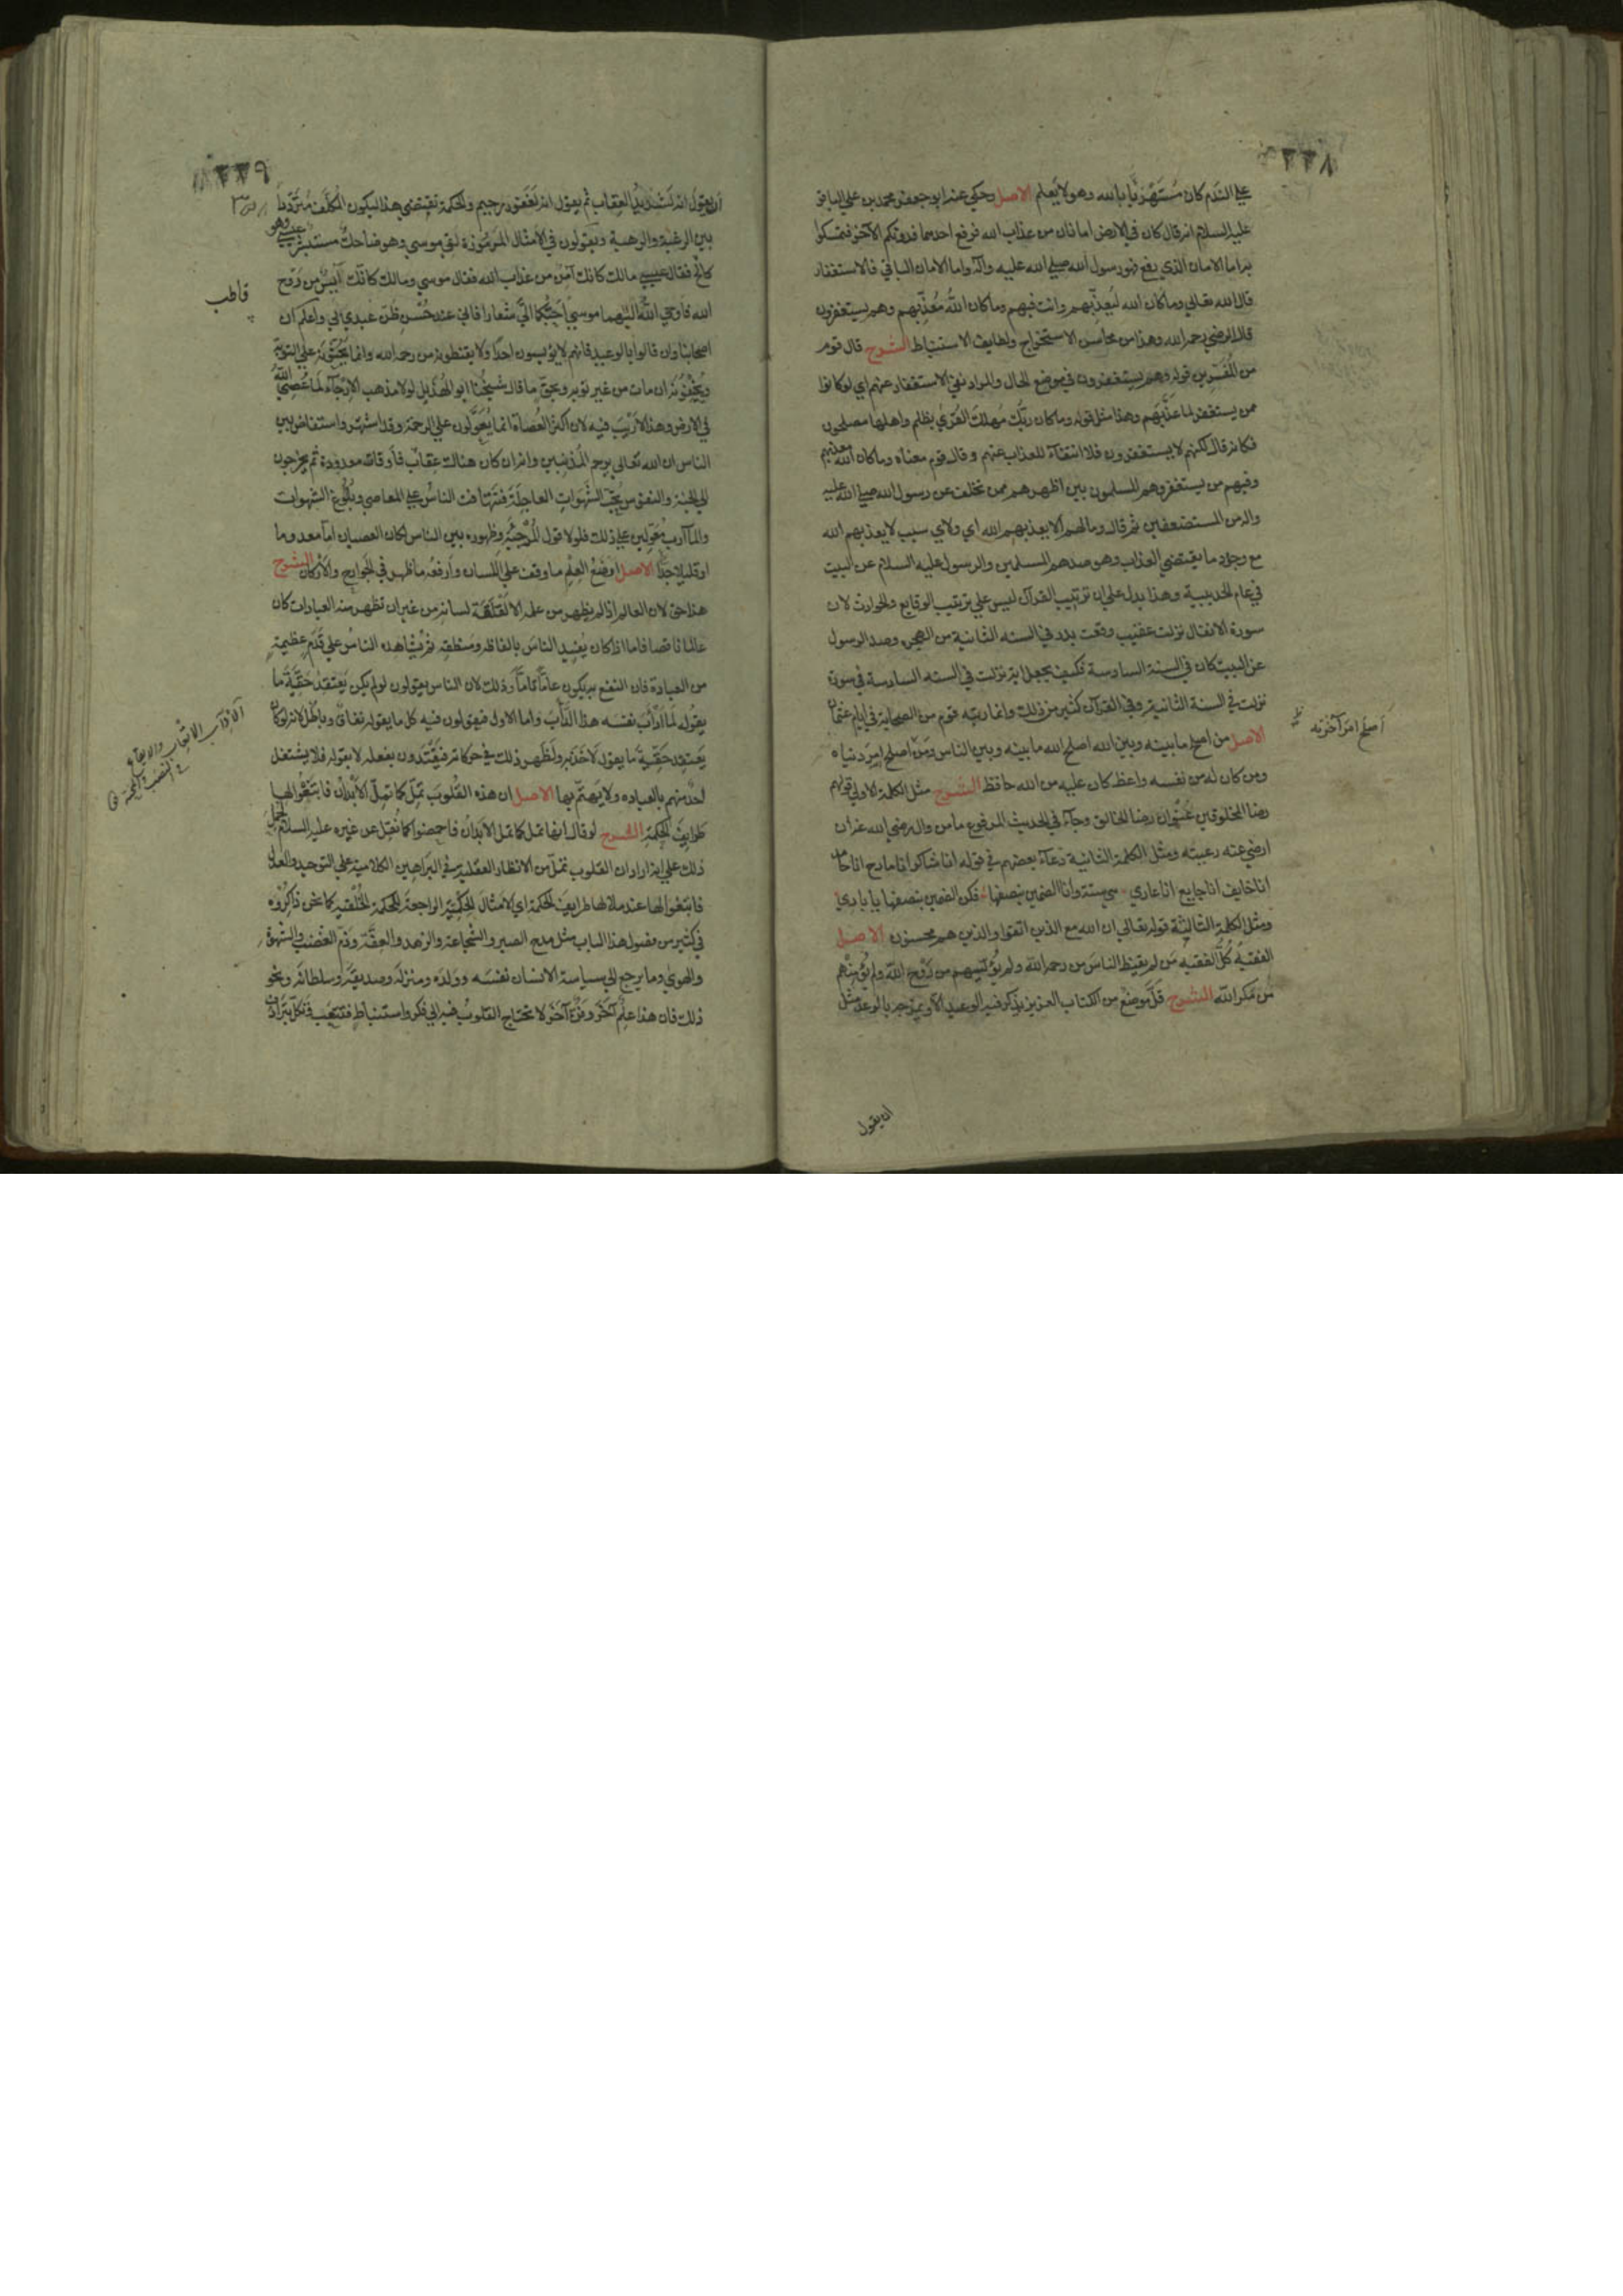 ٢٢٨
على الندم كان مستهزئا بالله وهو لا يعلم الاصل وحكى عنه ابو جعفر محمد بن علي الباقر
عليه السلام انه قال كان في الارض امانان من عذاب الله فرفع احدهما فدونكم الآخر فتمسكوا
به اما الامان الذي رفع فهو رسول الله صلي الله عليه وآله واما الامان الباقي فالاستغفار
قال الله تعالي وما كان الله ليعذبهم وانت فيهم وما كان الله معذبهم وهم يستغفرون
قال الرضي رحمه الله وهذا من محاسن الاستخراج ولطايف الاستنباط الشرح قال قوم
من المفسرين قوله وهم يستغفرون في موضع الحال والمراد نفي الاستغفار عنهم اي لو كانوا
ممن يستغفر لما عذبهم وهذا مثل قوله وما كان ربك مهلك القري بظلم واهلها مصلحون
فكانه قال لكنهم لا يستغفرون فلا انتفآء للعذاب عنهم وقال قوم معناه وما كان الله معذبهم
وفيهم من يستغفر وهم المسلمون بين اظهرهم ممن تخلف عن رسول الله صلي الله عليه
وآله من المستضعفين ثم قال وما لهم الا يعذبهم الله اي ولاي سبب لا يعذبهم الله
مع وجود ما يقتضي العذاب وهو صدهم المسلمين والرسول عليه السلام عن البيت
في عام الحديبية وهذا يدل علي ان ترتيب القرآن ليس علي ترتيب الوقايع والحوادث لان
سورة الانفال نزلت عقيب وقعت بدر في السنه الثانية من الهجره وصد الرسول
عن البيت كان في السنة السادسة فكيف يجعل آية نزلت في السنه السادسة في سورة
نزلت في السنة الثانية وفي القرآن كثير من ذلك وانما رتبه قوم من الصحابة في ايام عثمان
الاصل من اصلح ما بينه وبين الله اصلح الله ما بينه وبين الناس ومن اصلح امر دنياه
اصلح امر آخرته
ومن كان له من نفسه واعظ كان عليه من الله حافظ الشرح مثل الكلمة الاولي قولهم
رضا المخلوقين عنوان رضا الخالق وجآء في الحديث المرفوع ما من وال رضي الله عنه ان
ارضي عنه رعيته ومثل الكلمة الثانية دعآء بعضهم في قوله انا شاكر انا مادح انا حامد
انا خايف انا جايع انا عاري هي ستة وانا الضمين بنصفها فكن الضمين بنصفها يا باري
ومثل الكلمة الثالثة قوله تعالي ان الله مع الذين اتقوا والذين هم محسنون الاصل
الفقيه كل الفقيه من لم يقنط الناس من رحمه الله ولم يؤيسهم من روح الله ولم يؤمنهم
من مكر الله الشرح قل موضع من الكتاب العزيز يذكر فيه الوعيد الا ويمزجه بالوعد مثل
ان يقول
٢٢٩
ان يقول انه لشديد العقاب ثم يقول انه لغفور رحيم والحكمة تقتضي هذا ليكون المكلف مترددا
بين الرغبة والرهبة ويقولون في الامثال المرموزة لقي موسي وهو ضاحك مستبشر عيسي وهو
كالح فقال عيسي مالك كانك آمن من عذاب الله فقال موسي ومالك كانك آيس من روح
قاطب
الله فاوحي الله اليهما موسي احبكما الي شعارا فاني عند حسن ظن عبدي بي واعلم ان
اصحابنا وان قالوا بالوعيد فانهم لا يؤيسون احدا ولا يقنطونه من رحمه الله وانما يحثونه علي التوبة
ويخوفونه ان مات من غير توبه وبحق ما قال شيخنا ابو الهذيل لولا مذهب الارجآء لما عصي الله
في الارض وهذا لا ريب فيه لان اكثر العصاة انما يعولون علي الرحمة وقد اشتهر واستفاض بين
الناس ان الله تعالي يرحم المذنبين وانه ان كان هناك عقاب فاوقاتا معدودة ثم يخرجون
الي الجنة والنفوس تحب الشهوات العاجلة فتهافت الناس علي المعاصي وبلوغ الشهوات
والمآرب معولين علي ذلك فلولا قول المرجئة وظهوره بين الناس لكان العصيان اما معدوما
او قليلا جدا الاصل اوضع العلم ما وقف علي اللسان وارفعه ما ظهر في الجوارح والاركان الشرح
هذا حق لان العالم اذا لم يظهر من علمه الا لقلقة لسانه من غير ان تظهر منه العبادات كان
عالما ناقصا فاما اذا كان يفيد الناس بالفاظه ومنطقه ثم يشاهده الناس علي قدم عظيمة
من العبادة فان النفع به يكون عاما تاما وذلك لان الناس يقولون لو لم يكن يعتقد حقية ما
يقوله لما ادأب نفسه هذا الدأب واما الاول فيقولون فيه كل ما يقوله نفاق وباطل لانه لو كان
يعتقد حقية ما يقول لاخذ به ولظهر ذلك في حركاته فيقتدون بفعله لا بقوله فلا يشتغل
احد منهم بالعباده ولا يهتم بها الاصل ان هذه القلوب تمل كما تمل الابدان فابتغوا لها
طرايف الحكمة الشرح لو قال انها تمل كما تمل الابدان فاحمضوا كما نقل عن غيره عليه السلام لحمل
ذلك علي انه اراد ان القلوب تمل من الانظار العقلية في البراهين الكلامية علي التوحيد والعدل
فابتغوا لها عند ملالها طرايف الحكمة اي الامثال الحكمية الراجعة للحكمة الخلقية كما نحن ذاكروه
في كثير من فصول هذا الباب مثل مدح الصبر والشجاعة والزهد والعفة وذم الغضب والشهوة
والهوي وما يرجع الي سياسة الانسان نفسه وولده ومنزله وصديقه وسلطانه ونحو
ذلك فان هذا علم آخر وفن آخر لا تحتاج القلوب فيه الي فكر واستنباط فتتعب وتكل بترادف